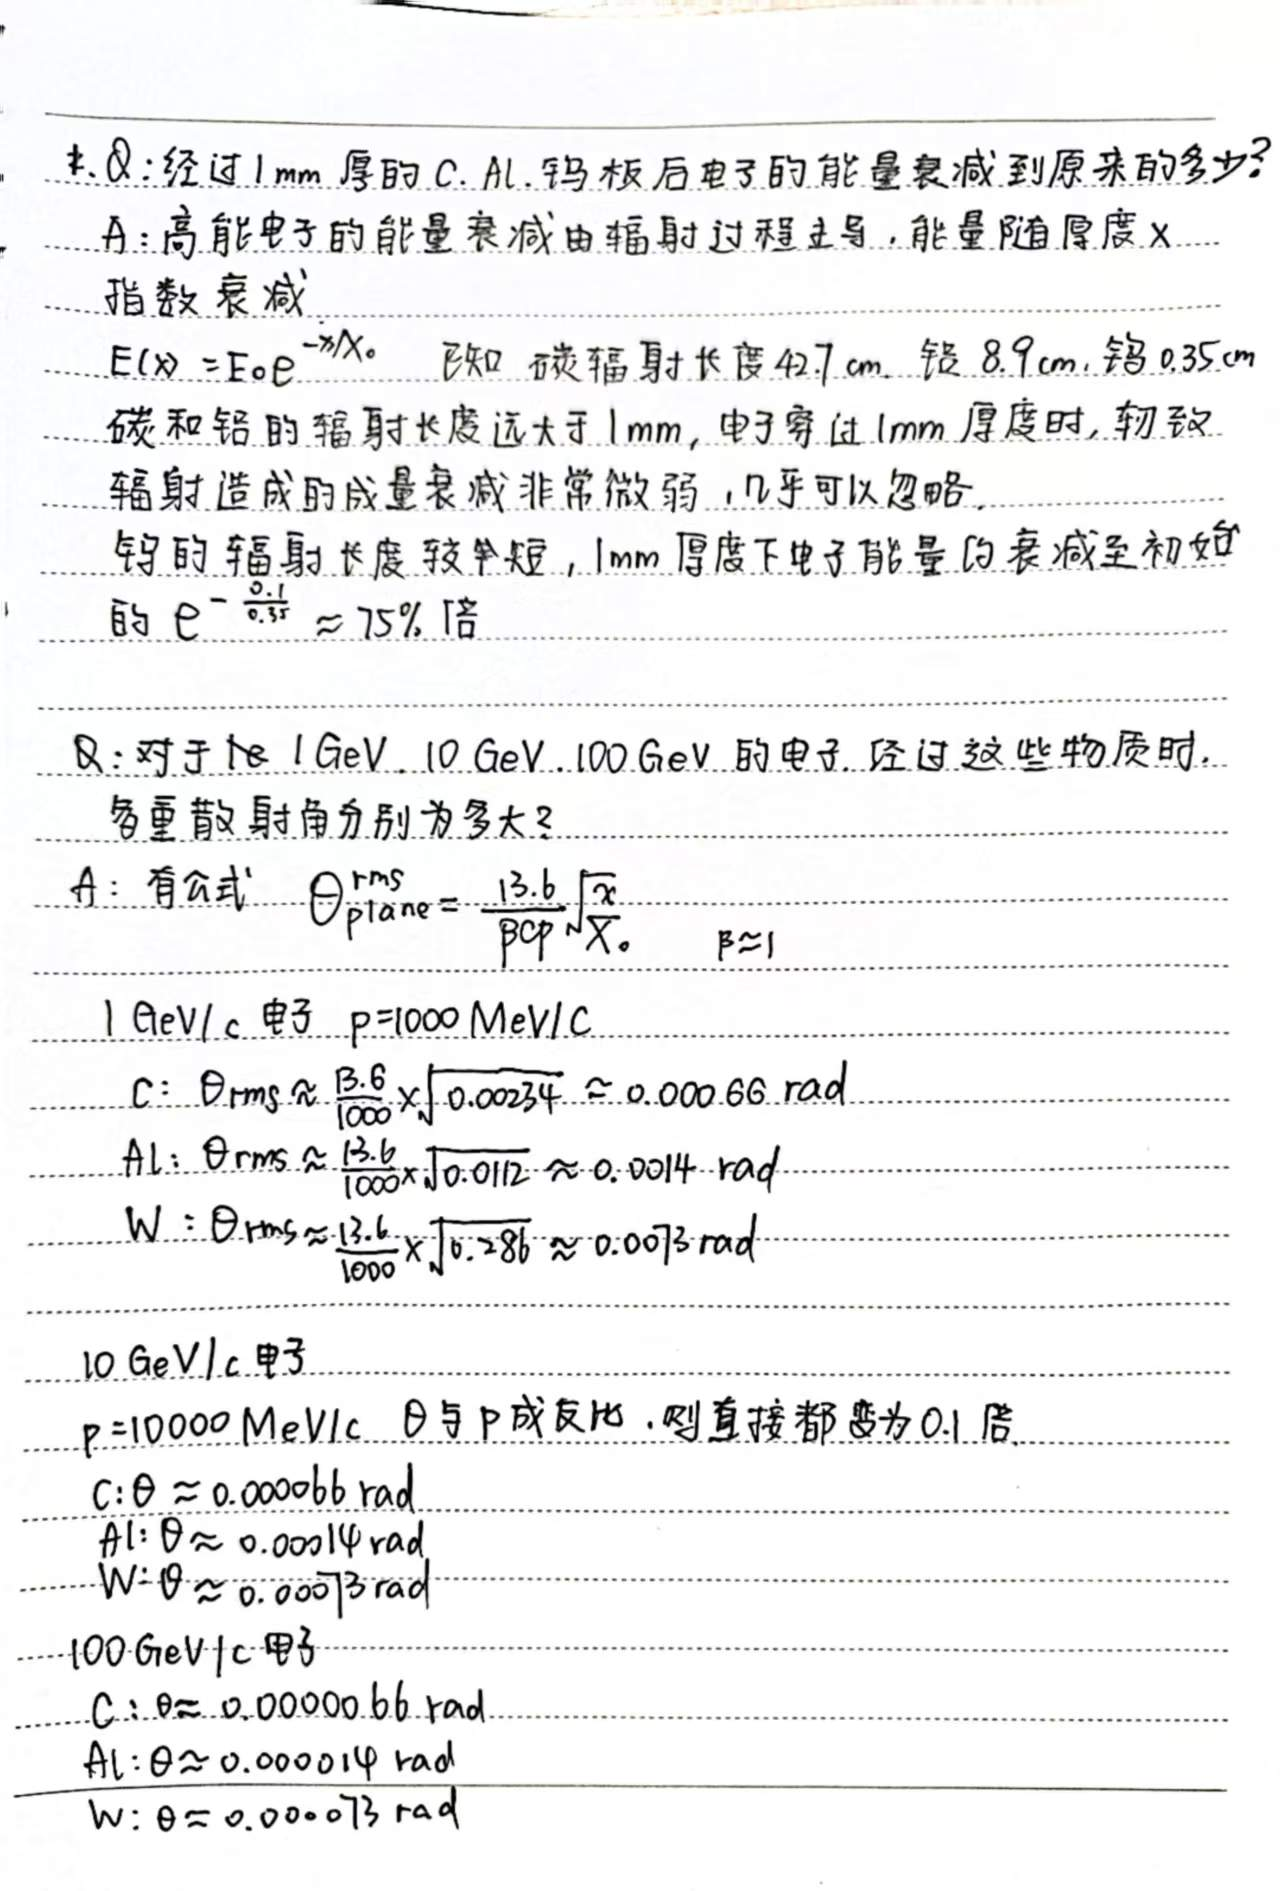 *. Q：经过1mm 厚的 C. Al. 钨板后电子的能量衰减到原来的多少？
A：高能电子的能量衰减由辐射过程主导，能量随厚度 x
指数衰减
E(x) = E₀e^{-x/X₀} 已知 碳辐射长度 42.7 cm. 铝 8.9cm. 钨 0.35cm
碳和铝的辐射长度远大于 1mm, 电子穿过 1mm 厚度时, 轫致
辐射造成的成量衰减非常微弱，几乎可以忽略.
钨的辐射长度较短，1mm 厚度下电子能量约衰减至初始
的 e^{-\frac{0.1}{0.35}} ≈ 75% 倍
Q：对于 1GeV. 10 GeV. 100 GeV 的电子. 经过这些物质时.
多重散射角分别为多大？
A：有公式 θ_{plane}^{rms} = \frac{13.6}{βcp} \sqrt{\frac{x}{X₀}} β≈1
1 GeV/c 电子 p=1000 MeV/C
C: θrms ≈ \frac{13.6}{1000} × \sqrt{0.00234} ≈ 0.00066 rad
Al: θrms ≈ \frac{13.6}{1000} × \sqrt{0.0112} ≈ 0.0014 rad
W: θrms ≈ \frac{13.6}{1000} × \sqrt{0.286} ≈ 0.0073 rad
10 GeV/c 电子
p=10000 MeV/c θ与p成反比. 则直接都变为 0.1 倍.
C: θ ≈ 0.000066 rad
Al: θ ≈ 0.00014 rad
W: θ ≈ 0.00073 rad
100 GeV/c 电子
C: θ≈ 0.0000066 rad
Al: θ≈ 0.000014 rad
W: θ≈ 0.000073 rad